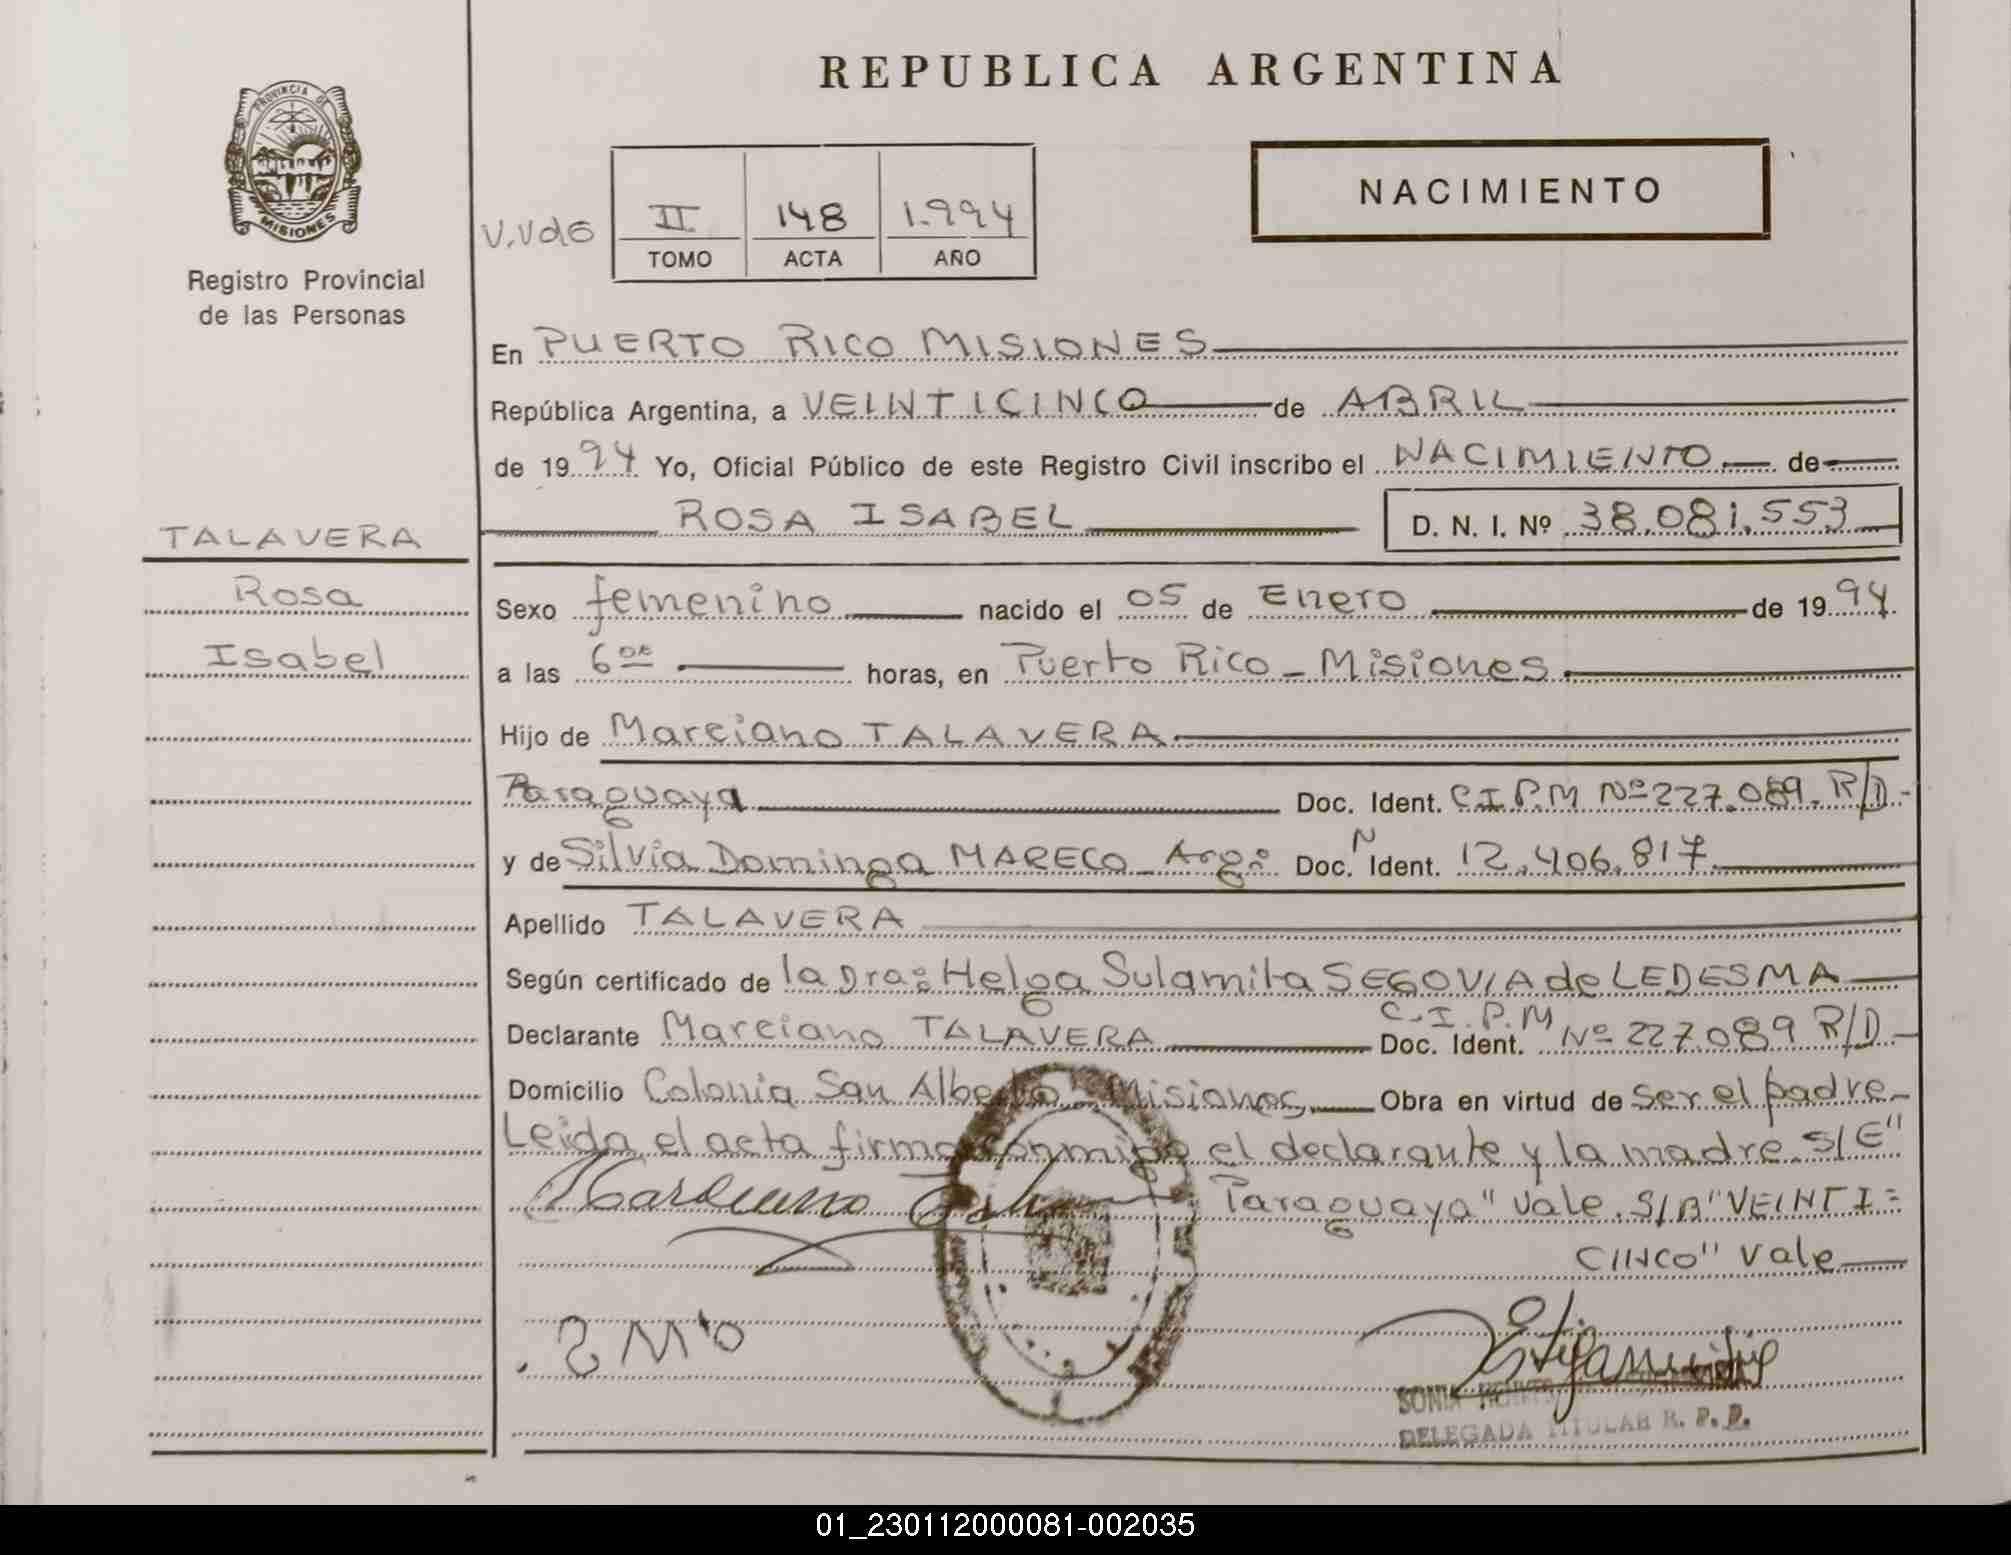 REPUBLICA ARGENTINA
PROVINCIA DE
MISIONES
Registro Provincial
de las Personas
NACIMIENTO
V.Vd6
II 148 1.994
TOMO ACTA AÑO
En PUERTO RICO MISIONES
República Argentina, a VEINTICINCO de ABRIL
de 1994 Yo, Oficial Público de este Registro Civil inscribo el NACIMIENTO de
ROSA ISABEL D. N. I. Nº 38.081.553
TALAVERA
Rosa
Isabel
Sexo femenino nacido el 05 de Enero de 1994.
a las 6 horas, en Puerto Rico - Misiones
Hijo de Marciano TALAVERA
Paraguaya Doc. Ident. C.I.P.M Nº 227.089. R/D-
y de Silvia Dominga MARECO - Arg: Doc. N Ident. 12.406.817
Apellido TALAVERA
Según certificado de la Dra: Helga Sulamita SEGOVIA de LEDESMA
Declarante Marciano TALAVERA Doc. Ident. C.I.P.M Nº 227.089 R/D-
Domicilio Colonia San Alberto Misiones Obra en virtud de ser el padre-
Leida el acta firma conmigo el declarante y la madre. S/E"
Paraguaya" Vale. S/B "VEINTI=
CINCO" Vale
SONIA
DELEGADA TITULAR R. P. P.
01_230112000081-002035